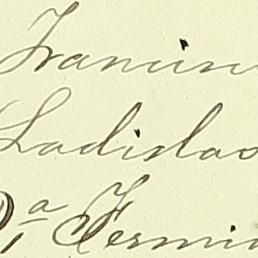 Francisc
Ladislao
Dª Fermi